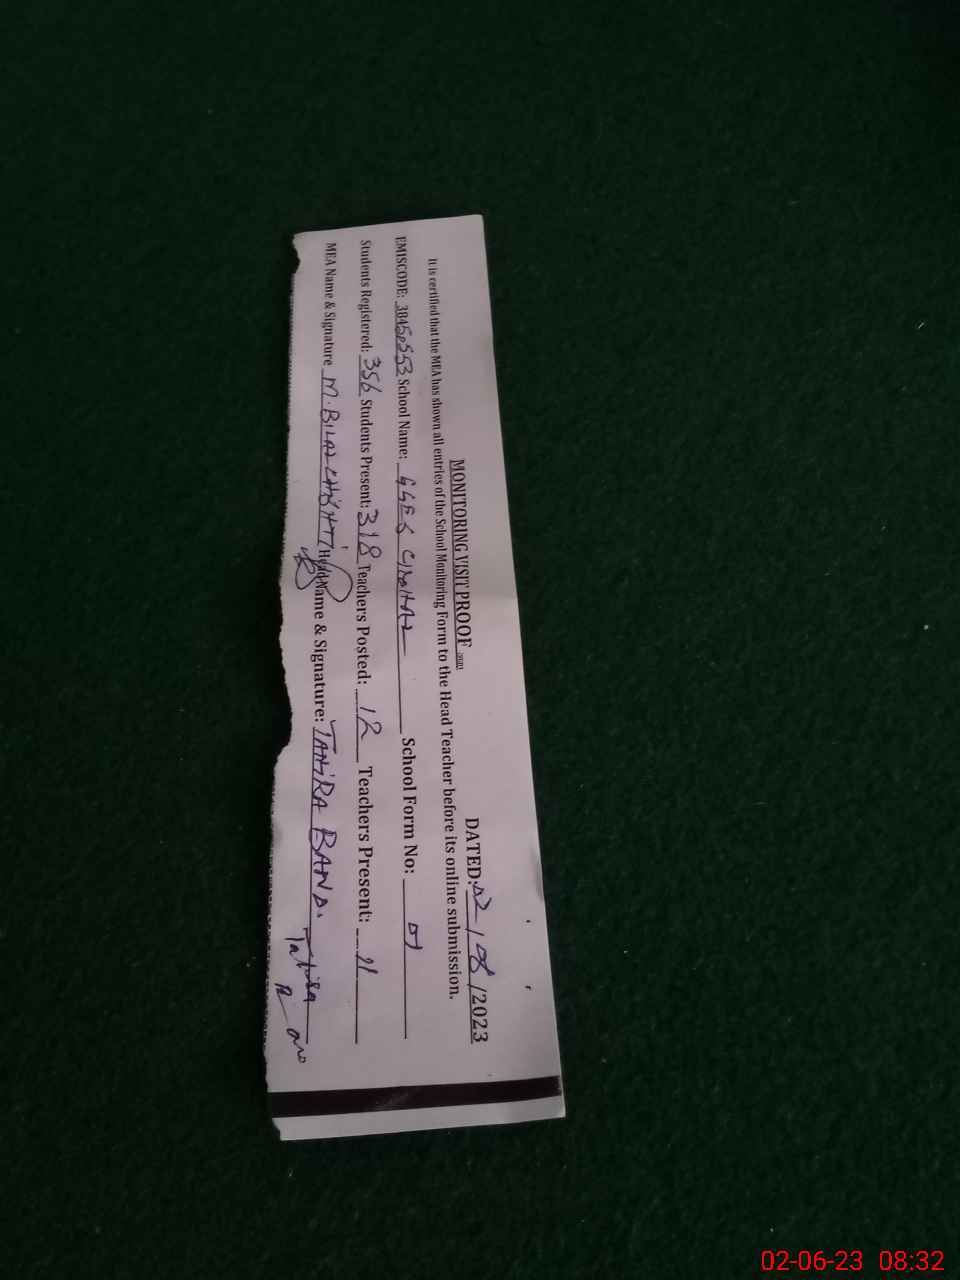 MONITORING VISIT PROOF
DATED: 02/06/2023
It is certified that the MEA has shown all entries of the School Monitoring Form to the Head Teacher before its online submission.
EMISCODE: 38450553 School Name: GGES School Form No: 01
Students Registered: 356 Students Present: 318 Teachers Posted: 12 Teachers Present: 11
MEA Name & Signature M. BILAL CHISHTI Head Name & Signature: TAHIRA BANO.
02-06-23 08:32